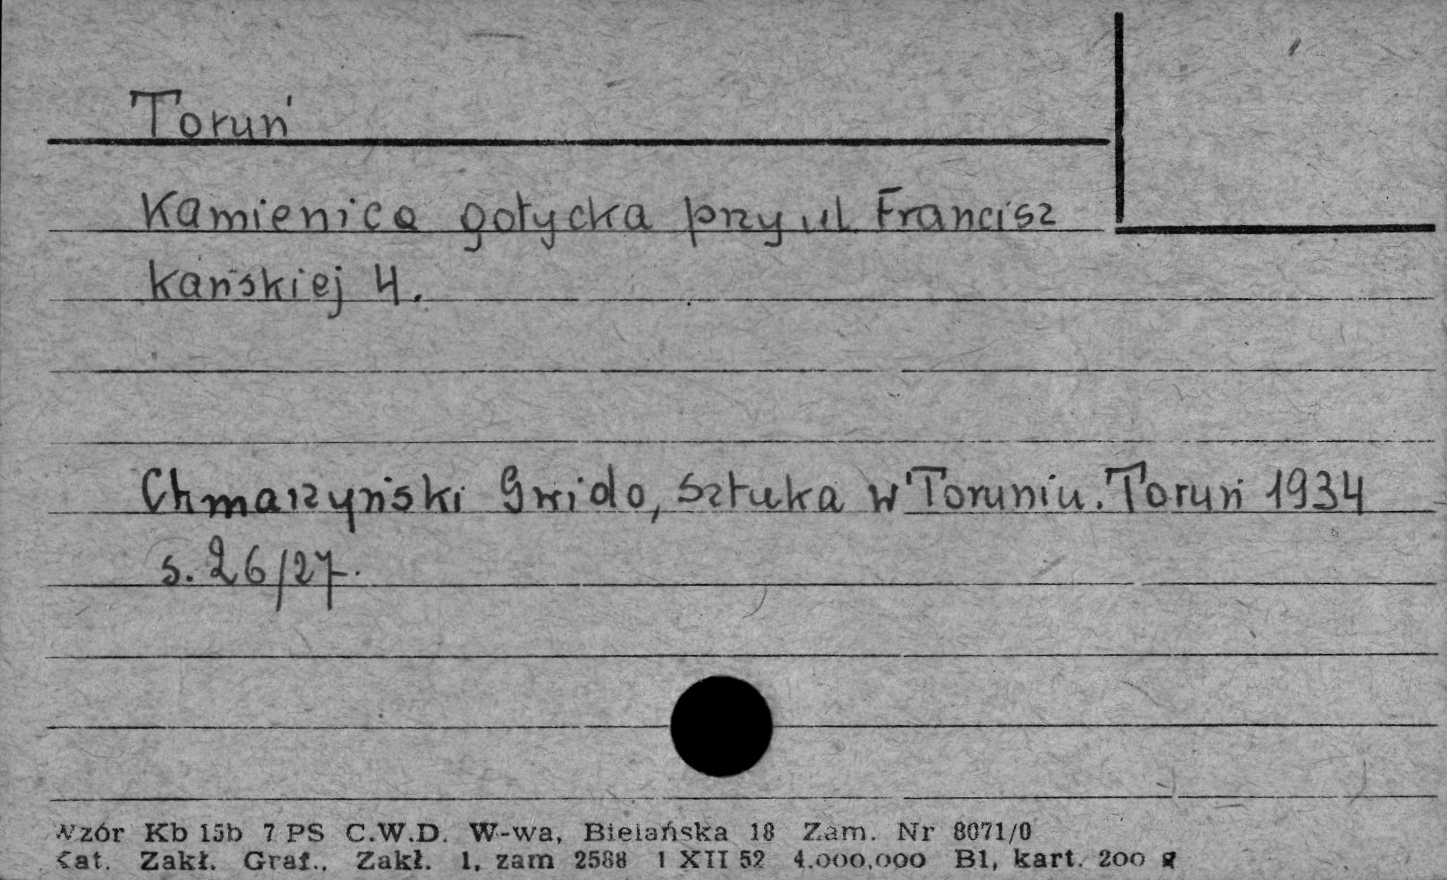 Toruń
Kamienica gotycka przy ul. Francisz
kańskiej 4.
Chmarzyński Gwido, Sztuka w Toruniu. Toruń 1934
s. 26/27.
Wzór Kb 15b 7 PS C.W.D. W-wa, Bielańska 18 Zam. Nr 8071/0
Kat. Zakł. Graf., Zakł. 1, zam 2588 1 XII 52 4.000.000 B1, kart. 200 g